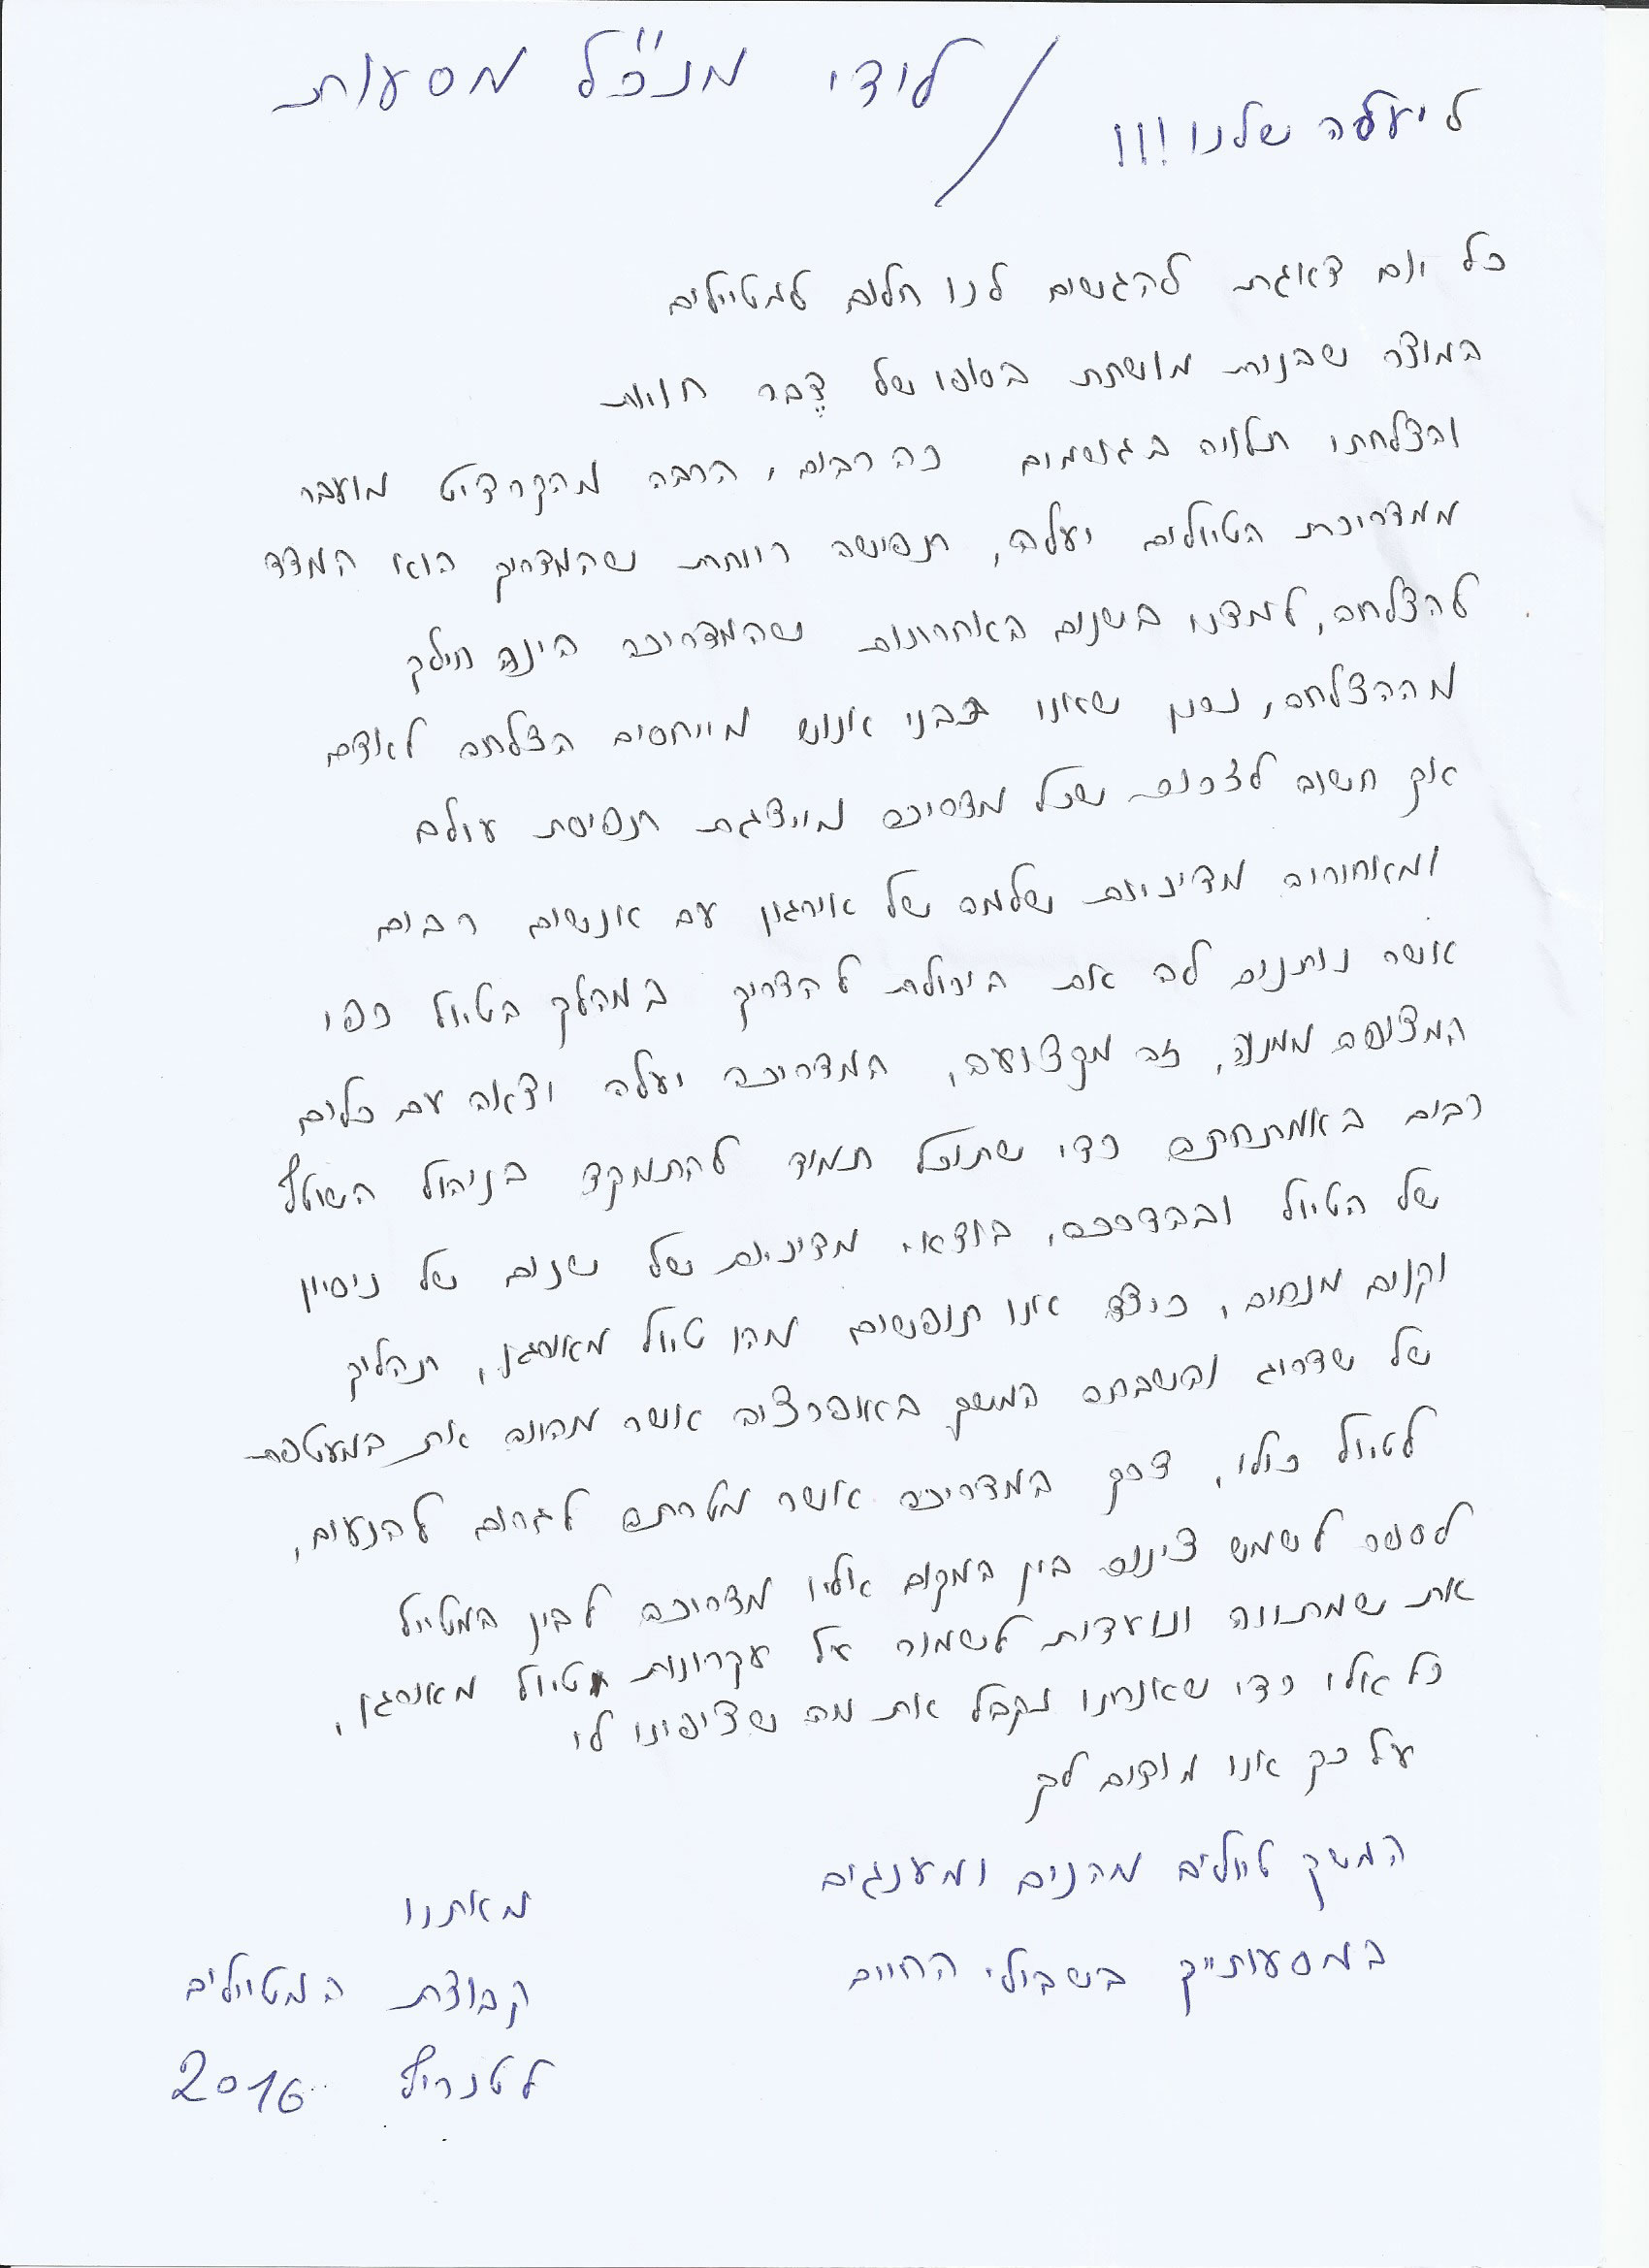 ליעלה שלנו!!! / לודי מנכ"ל מסעות
כל יום דאגת להגשים לנו חלום למטיילים
המוצר שבנית מושתת בסופו של דבר חוויות
והצלחתו תלויה בגורמים כה רבים, הרבה מהקרדיט מועבר
ממדריכת הטיולים יעלה, תפישה רווחת שהמדריך הוא המדד
להצלחה, למדנו בשנים האחרונות שהמדריכה הינה חלק
מההצלחה, נכון שאנו כבני אנוש מייחסים הצלחה לאדם
אך חשוב לזכור שכל מדריכה מייצגת תפיסת עולם
ומאחוריה מדיניות שלמה של אירגון עם אנשים רבים
אשר נותנים לה את היכולת להדריך במהלך הטיול כפי
המצופה ממנה, זה מקצועה, המדריכה יעלה יצאה עם כלים
רבים באמתחתה כדי שתוכל תמיד להתמקד בניהול השוטף
של הטיול ובהדרכה, בוודאי מדיניות של שנים של ניסיון
וקווים מנחים, כיצד אנו תופשים מהו טיול מאורגן, תהליך
של שדרוג והשבחה המשך באופרציה אשר מהווה את המעטפת
לטיול כולו, דרך המדריכה אשר מטרתה לגרום להנעים,
לספר לשמש צינור בין המקום אליו מדריכה לבין המטייל
את שמתווה ונועדות לשמור על עקרונות טיול מאורגן,
כל אלו כדי שאנחנו נקבל את מה שציפינו לו
על כך אנו מודים לך
המשך טיולים מהנים ומענגים
במסעותייך בשבילי החיים
מאתנו
קבוצת המטיילים
לטנריף 2016